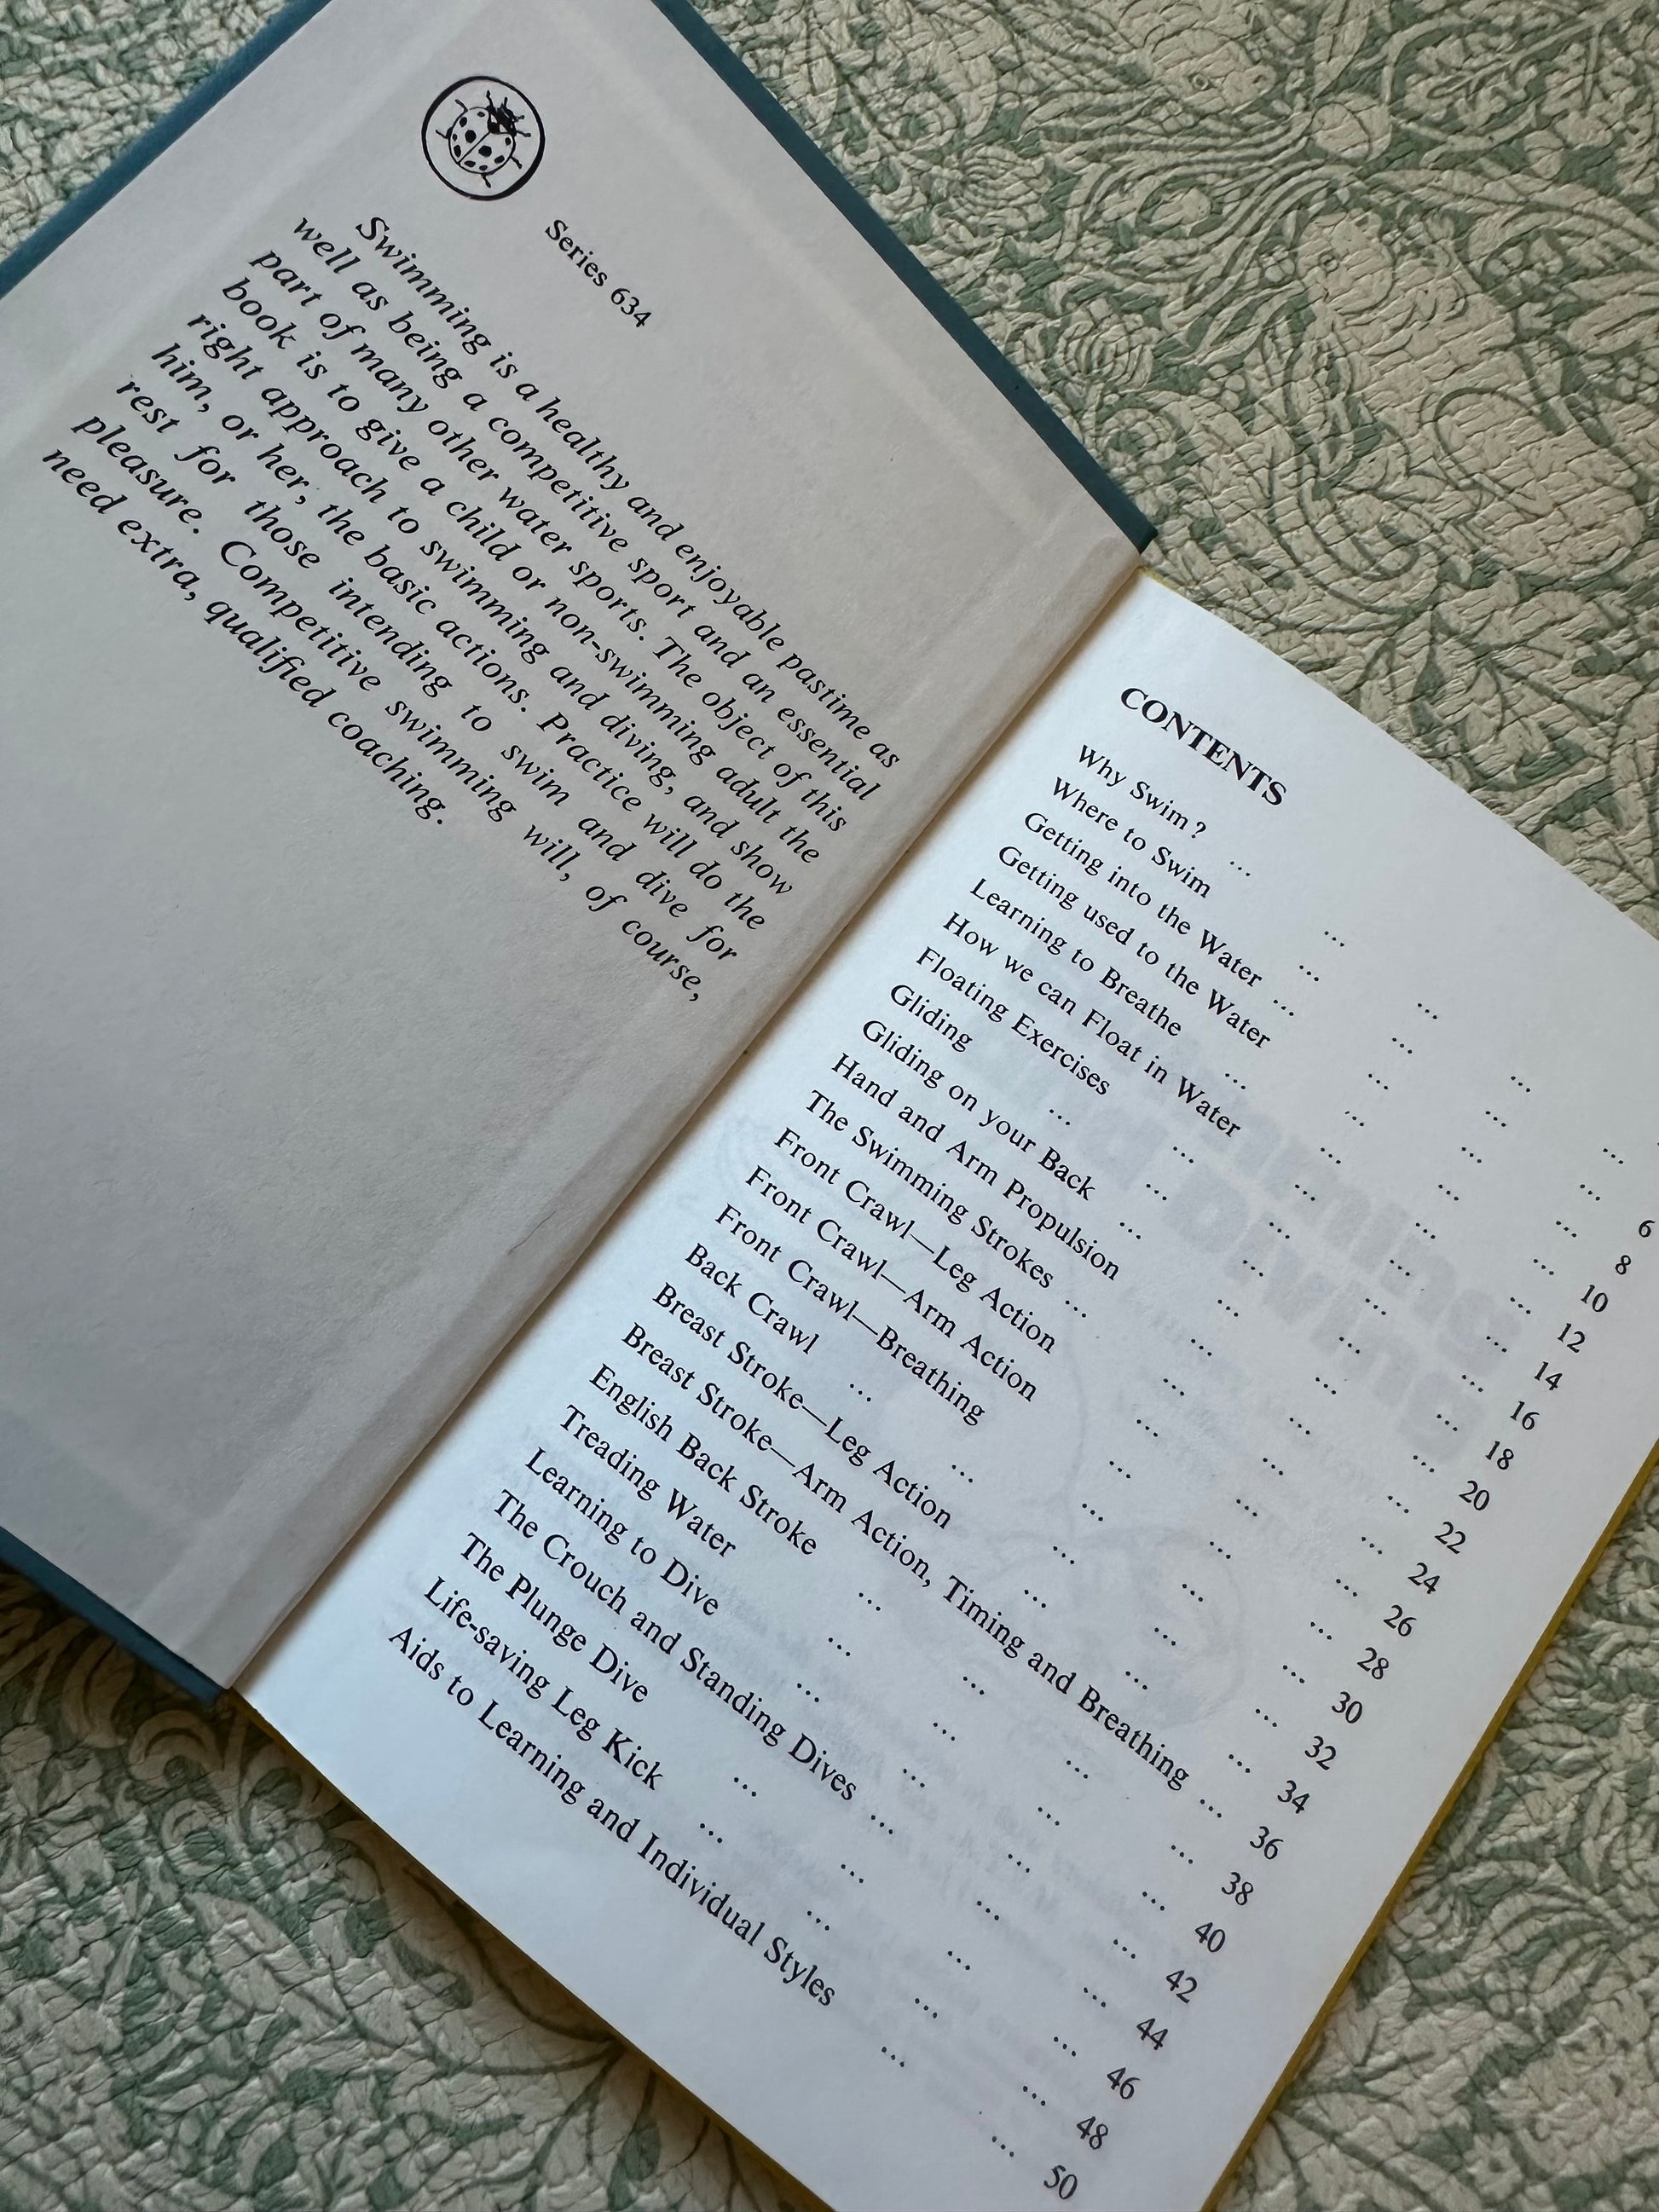 Series 634
Swimming is a healthy and enjoyable pastime as
well as being a competitive sport and an essential
part of many other water sports. The object of this
book is to give a child or non-swimming adult the
right approach to swimming and diving, and show
him, or her, the basic actions. Practice will do the
rest for those intending to swim and dive for
pleasure. Competitive swimming will, of course,
need extra, qualified coaching.
CONTENTS
Why Swim? ... ... ... ... ...
Where to Swim ... ... ... ... 6
Getting into the Water ... ... ... ... 8
Getting used to the Water ... ... ... 10
Learning to Breathe ... ... ... ... 12
How we can Float in Water ... ... ... 14
Floating Exercises ... ... ... ... 16
Gliding ... ... ... ... ... 18
Gliding on your Back ... ... ... ... 20
Hand and Arm Propulsion ... ... ... 22
The Swimming Strokes ... ... ... ... 24
Front Crawl—Leg Action ... ... ... 26
Front Crawl—Arm Action ... ... ... 28
Front Crawl—Breathing ... ... ... 30
Back Crawl ... ... ... ... ... 32
Breast Stroke—Leg Action ... ... ... 34
Breast Stroke—Arm Action, Timing and Breathing ... 36
English Back Stroke ... ... ... ... 38
Treading Water ... ... ... ... 40
Learning to Dive ... ... ... ... 42
The Crouch and Standing Dives ... ... ... 44
The Plunge Dive ... ... ... ... 46
Life-saving Leg Kick ... ... ... ... 48
Aids to Learning and Individual Styles ... ... 50